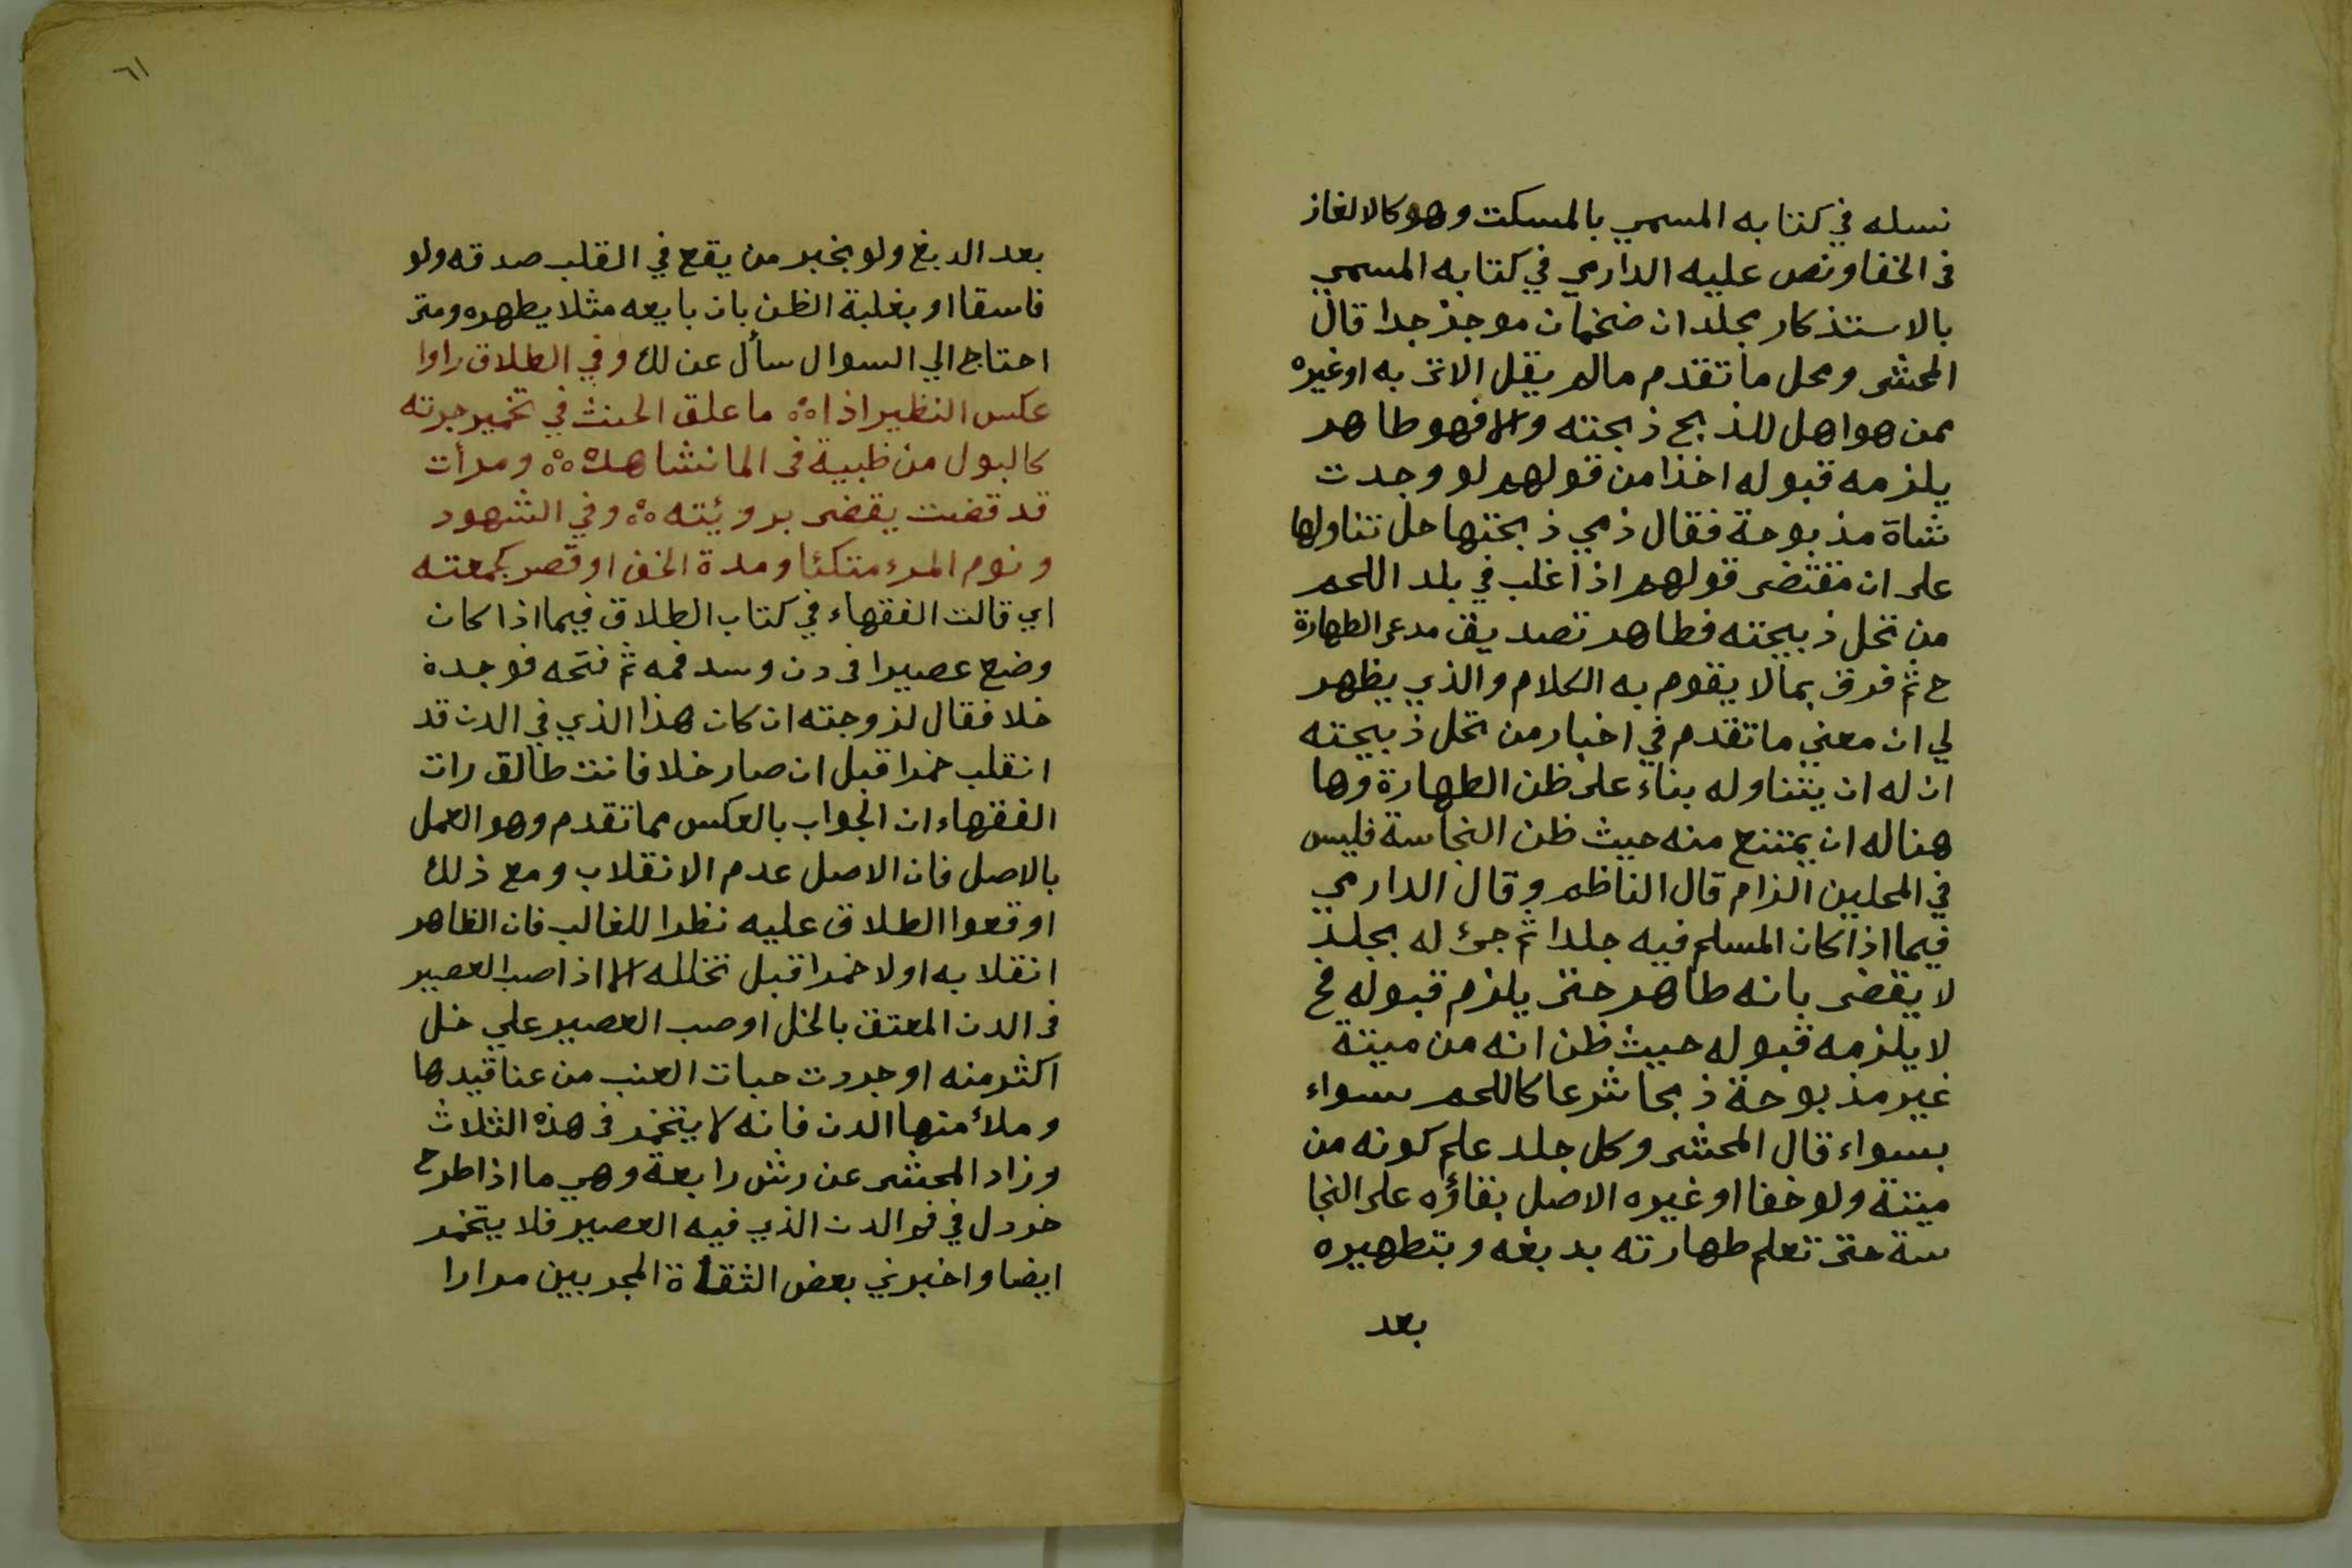 نسله في كتابه المسمي بالمسكت وهو كالالغاز
فى الخفا ونص عليه الدارمي في كتابه المسمي
بالاستذكار مجلدان ضخمان موجز جدا قال
المحشى ومحل ما تقدم مالم يقل الاتى به او غيره
ممن هو اهل للذبح ذبحته والا فهو طاهر
يلزمه قبوله اخذا من قولهم لو وجدت
شاة مذبوحة فقال ذمي ذبحتها حل تناولها
على ان مقتضى قولهم اذا غلب في بلد اللحم
من تحل ذبيحته فطاهر تصديق مدعى الطهارة
ح ثم فرق بمالا يقوم به الكلام والذي يظهر
لي ان معني ما تقدم في اخبار من تحل ذبيحته
ان له ان يتناوله بناء على ظن الطهارة وها
هنا له ان يمتنع منه حيث ظن النجاسة فليس
في المحلين الزام قال الناظم وقال الدارمي
فيما اذا كان المسلم فيه جلدا ثم جئ له بجلد
لا يقضى بانه طاهر حتى يلزم قبوله فح
لا يلزمه قبوله حيث ظن انه من ميتة
غير مذبوحة ذبحا شرعا كاللحم سواء
بسواء قال المحشى وكل جلد علم كونه من
ميتة ولو خفا او غيره الاصل بقاؤه على النجا
سة حتى تعلم طهارته بدبغه وبتطهيره
بعد
٦١
بعد الدبغ ولو بخبر من يقع في القلب صدقه ولو
فاسقا او بغلبة الظن بان بايعه مثلا يطهره ومتى
احتاج الي السوال سأل عن لك وفي الطلاق راوا
عكس النظير اذا ؞ ما علق الحنث في تخمير جرته
كالبول من ظبية فى الما نشاهده ؞ ومرأت
قد قضت يقضى برويئته ؞ وفي الشهود
ونوم المرء متكئا ومدة الخف او قصر كجمعته
اي قالت الفقهاء في كتاب الطلاق فيما اذا كان
وضع عصيرا فى دن وسد فمه ثم فتحه فوجدة
خلا فقال لزوجته ان كان هذا الذي في الدن قد
انقلب خمرا قبل ان صار خلا فانت طالق رات
الفقهاء ان الجواب بالعكس مما تقدم وهو العمل
بالاصل فان الاصل عدم الانقلاب ومع ذلك
اوقعوا الطلاق عليه نظرا للغالب فان الظاهر
انقلابه اولا خمرا قبل تخلله الا اذا صب العصير
فى الدن المعتق بالخل او صب العصير علي خل
اكثر منه او جردت حبات العنب من عناقيدها
وملأ منها الدن فانه لا يتخمر فى هذه الثلاث
وزاد المحشى عن رابعة وهي ما اذا طرح
خردل في فم الدن الذي فيه العصير فلا يتخمر
ايضا واخبرني بعض الثقاة المجربين مرارا